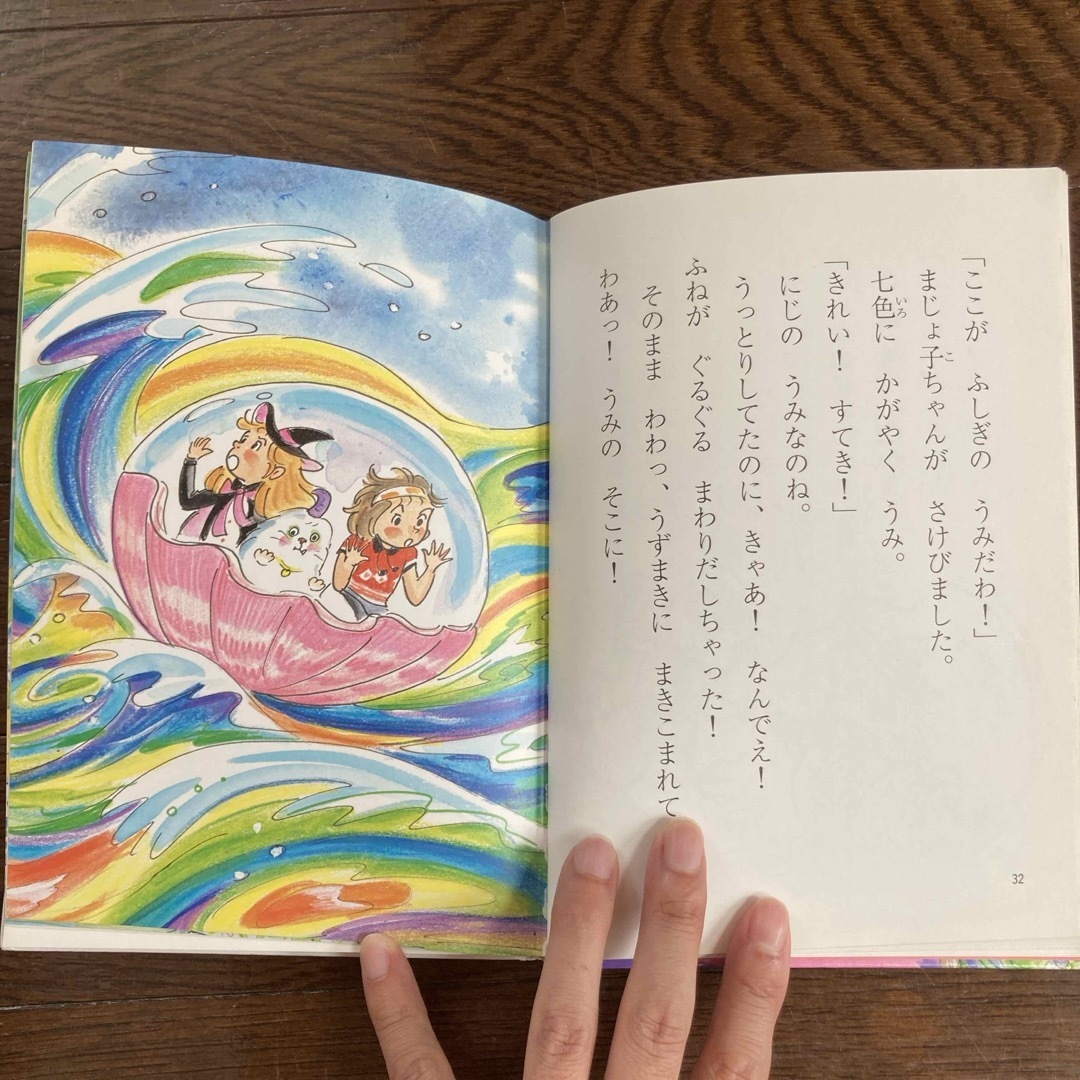 「ここが　ふしぎの　うみだわ！」
まじょ子ちゃんが　さけびました。
七色に　かがやく　うみ。
「きれい！　すてき！」
にじの　うみなのね。
うっとりしてたのに、きゃあ！　なんでえ！
ふねが　ぐるぐる　まわりだしちゃった！
そのまま　わわっ、うずまきに　まきこまれて
わあっ！　うみの　そこに！
32